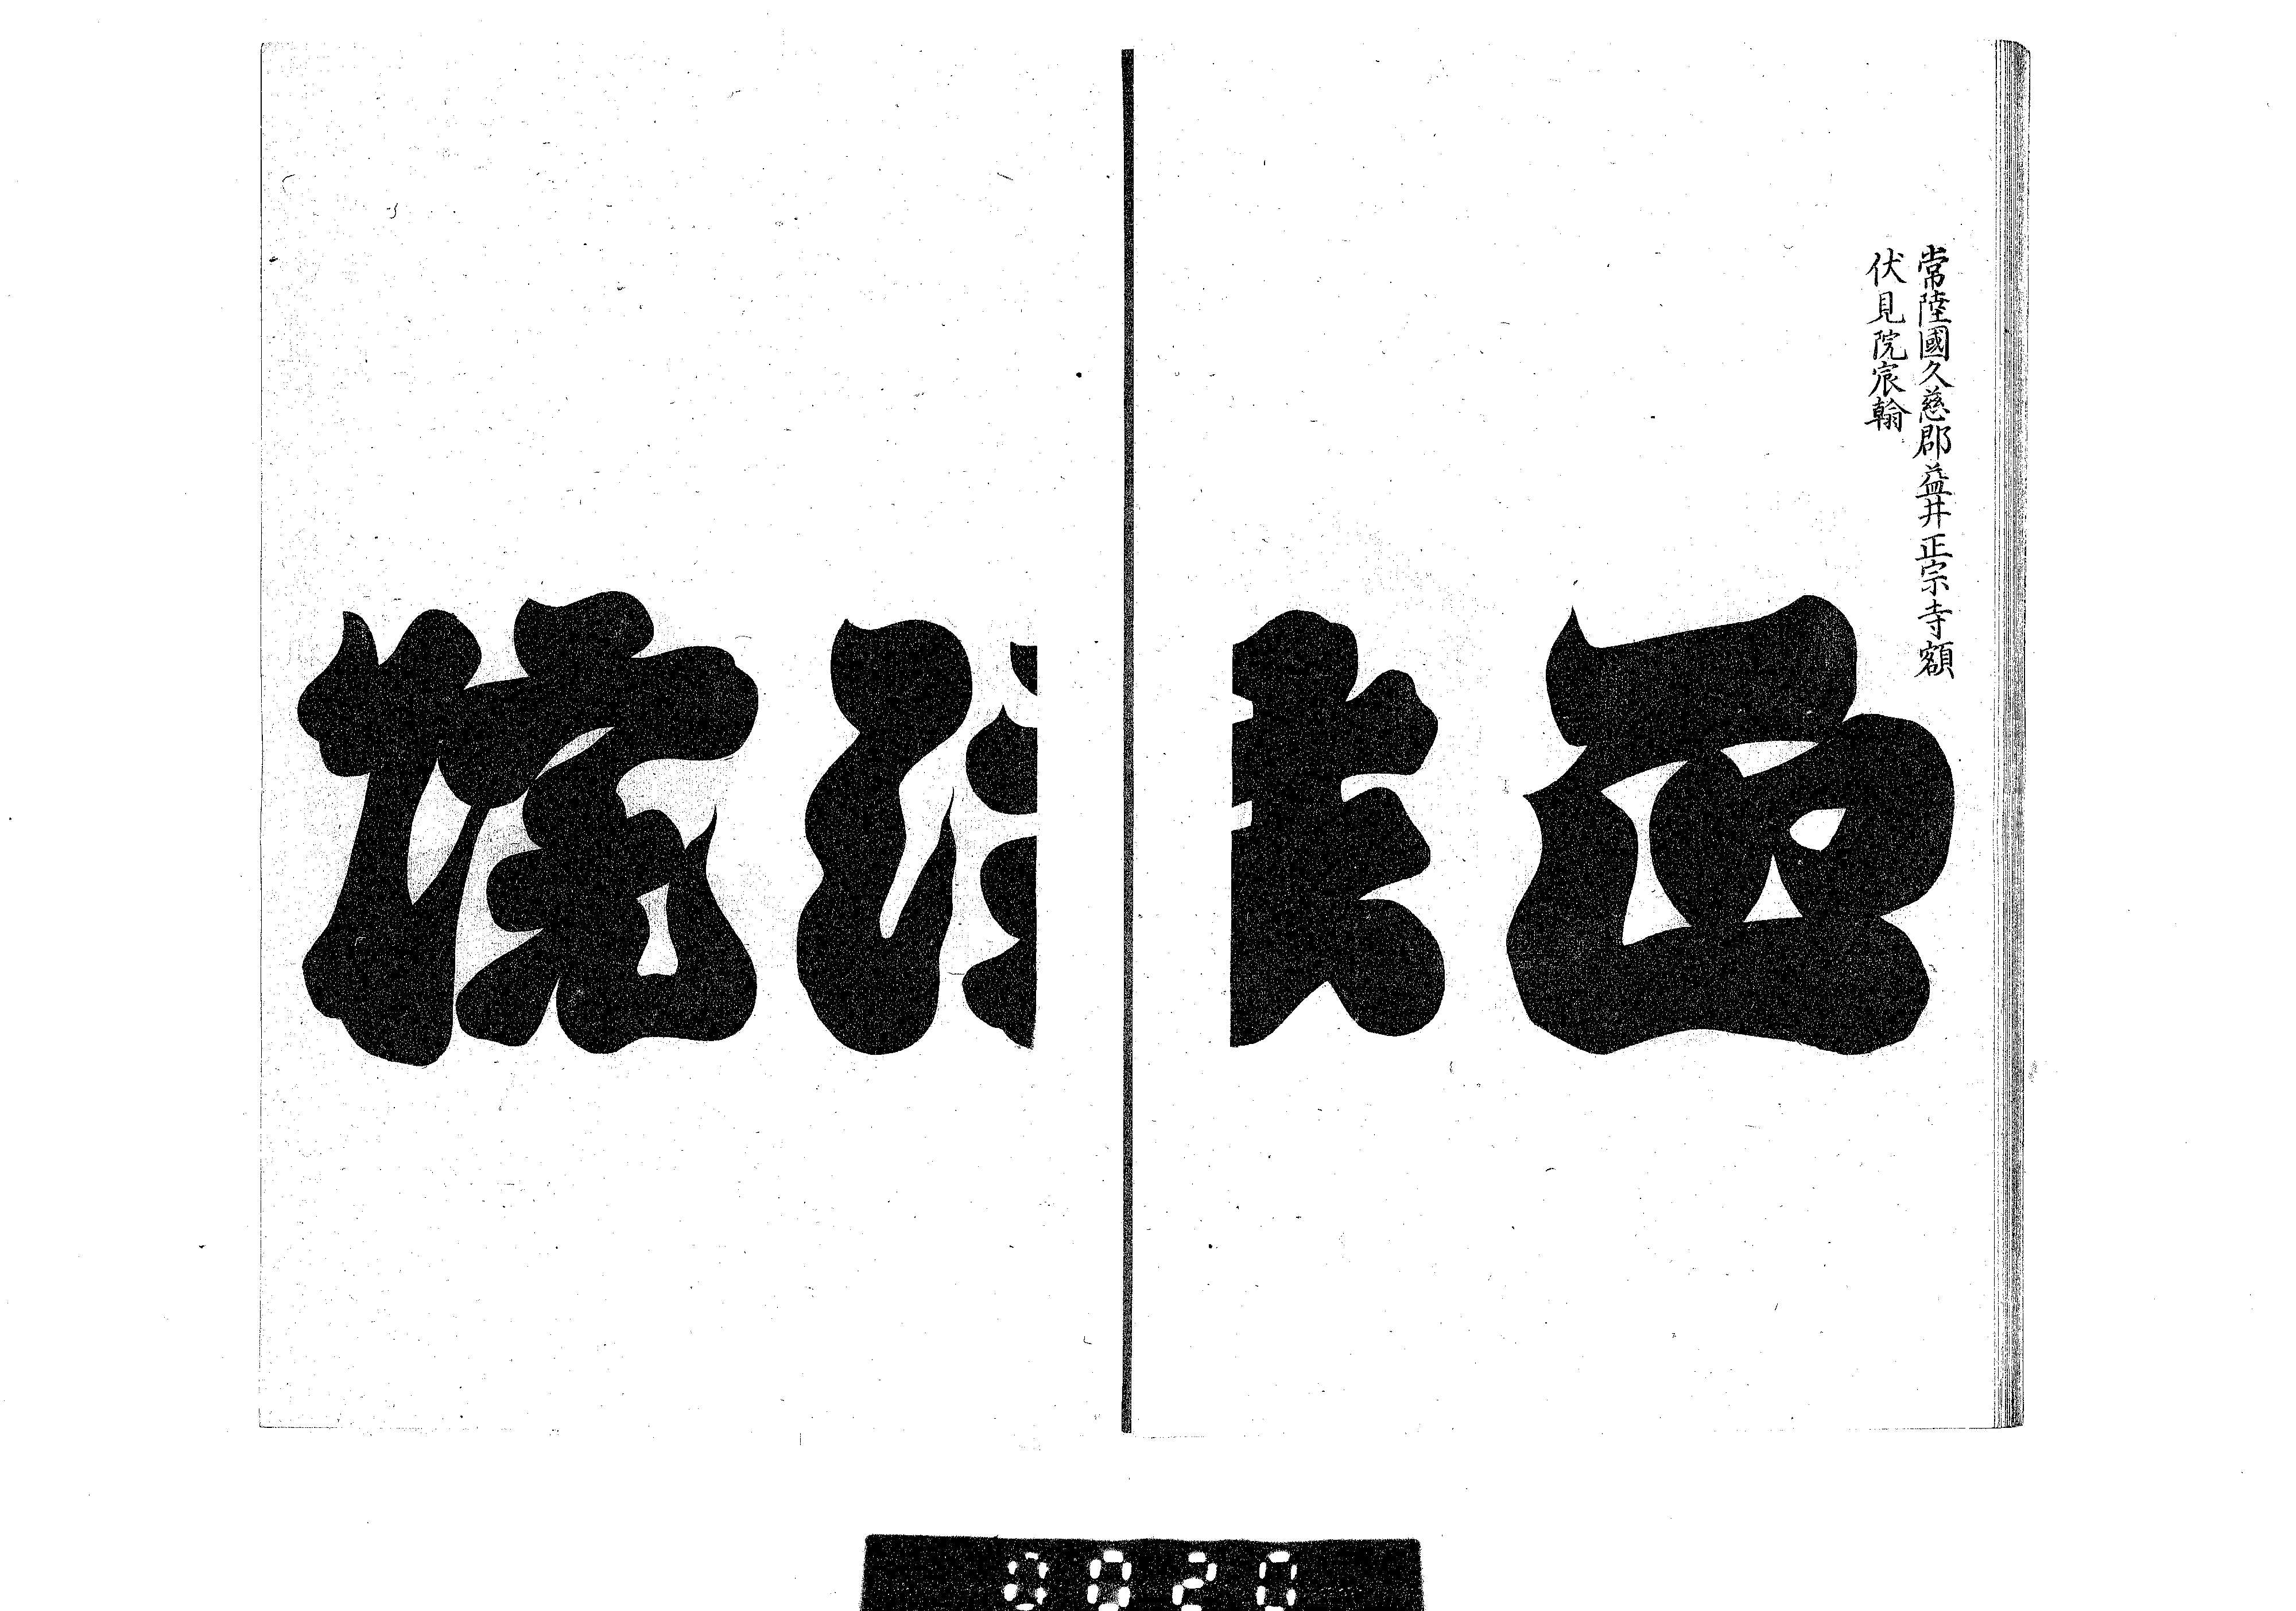 常陸國久慈郡益井正宗寺額
伏見院宸翰
正法院
0020